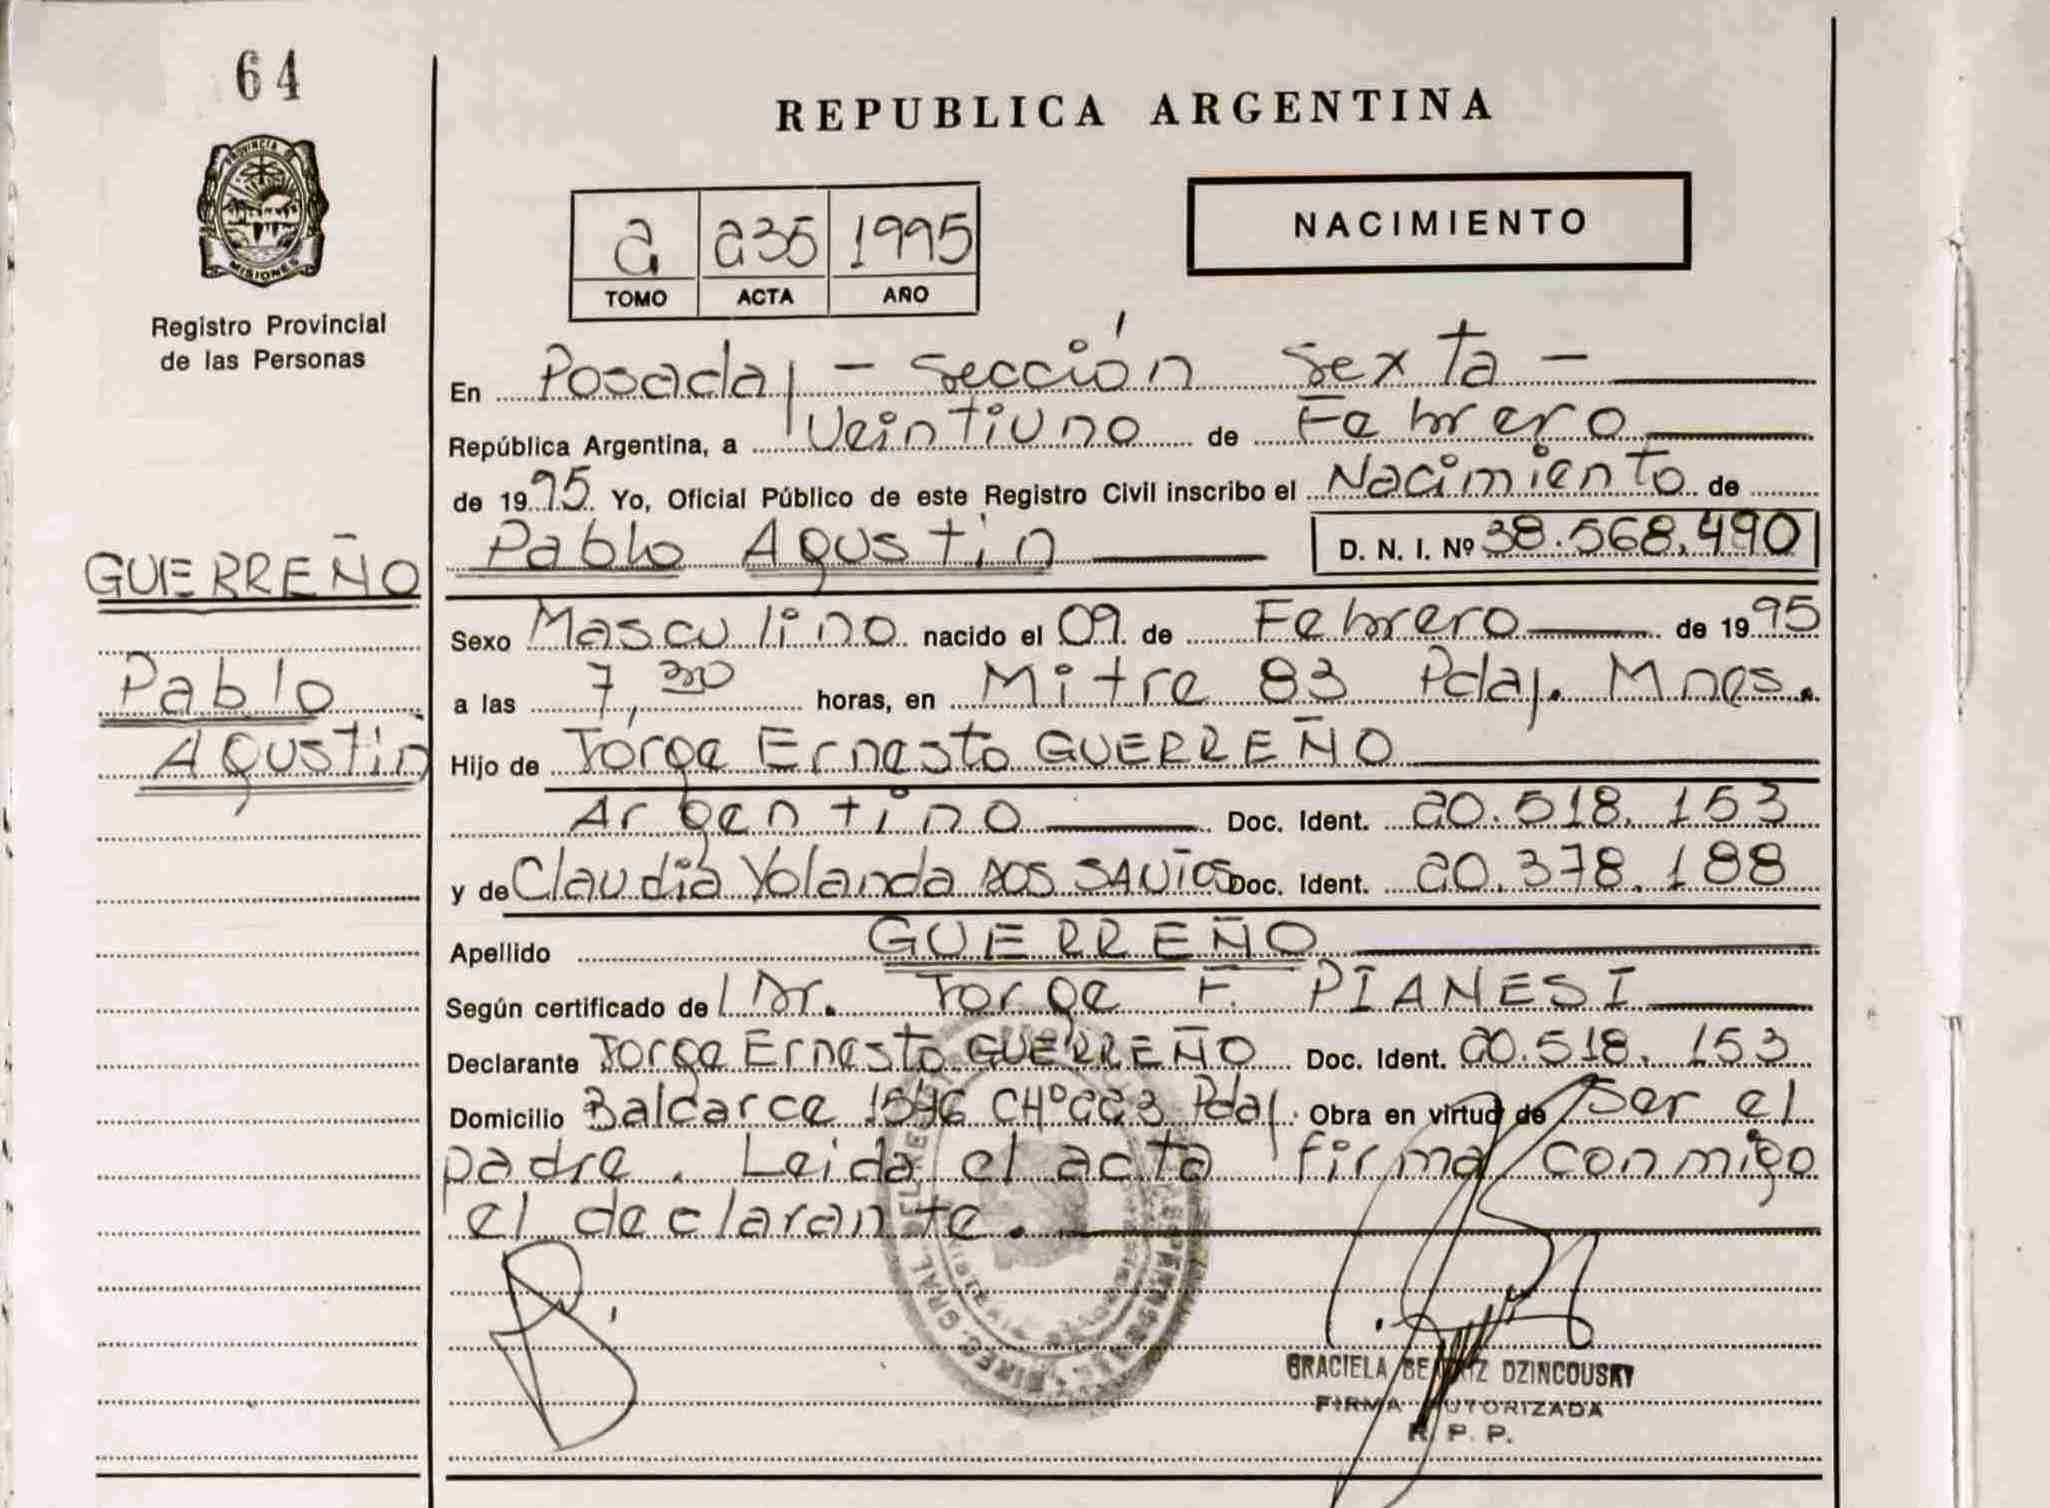 64
PROVINCIA DE
MISIONES
Registro Provincial
de las Personas
GUERREÑO
Pablo
Agustin
REPUBLICA ARGENTINA
2 235 1995
TOMO ACTA AÑO
NACIMIENTO
En Posadas - Sección Sexta -
República Argentina, a Veintiuno de Febrero
de 1995 Yo, Oficial Público de este Registro Civil inscribo el Nacimiento de
Pablo Agustín D. N. I. Nº 38.568.490
Sexo Masculino nacido el 09 de Febrero de 1995
a las 7,30 horas, en Mitre 83 Pdas. Mnes.
Hijo de Jorge Ernesto GUERREÑO
Argentino Doc. Ident. 20.518.153
y de Claudia Yolanda DOS SANTOS Doc. Ident. 20.378.188
Apellido GUERREÑO
Según certificado de Dr. Jorge F. PIANESI
Declarante Jorge Ernesto GUERREÑO Doc. Ident. 20.518.153
Domicilio Balcarce 1546 CHº 223 Pdas. Obra en virtud de Ser el
padre. Leida el acta firma conmigo
el declarante.
GRACIELA BEATRIZ DZINCOUSKY
FIRMA AUTORIZADA
R. P. P.